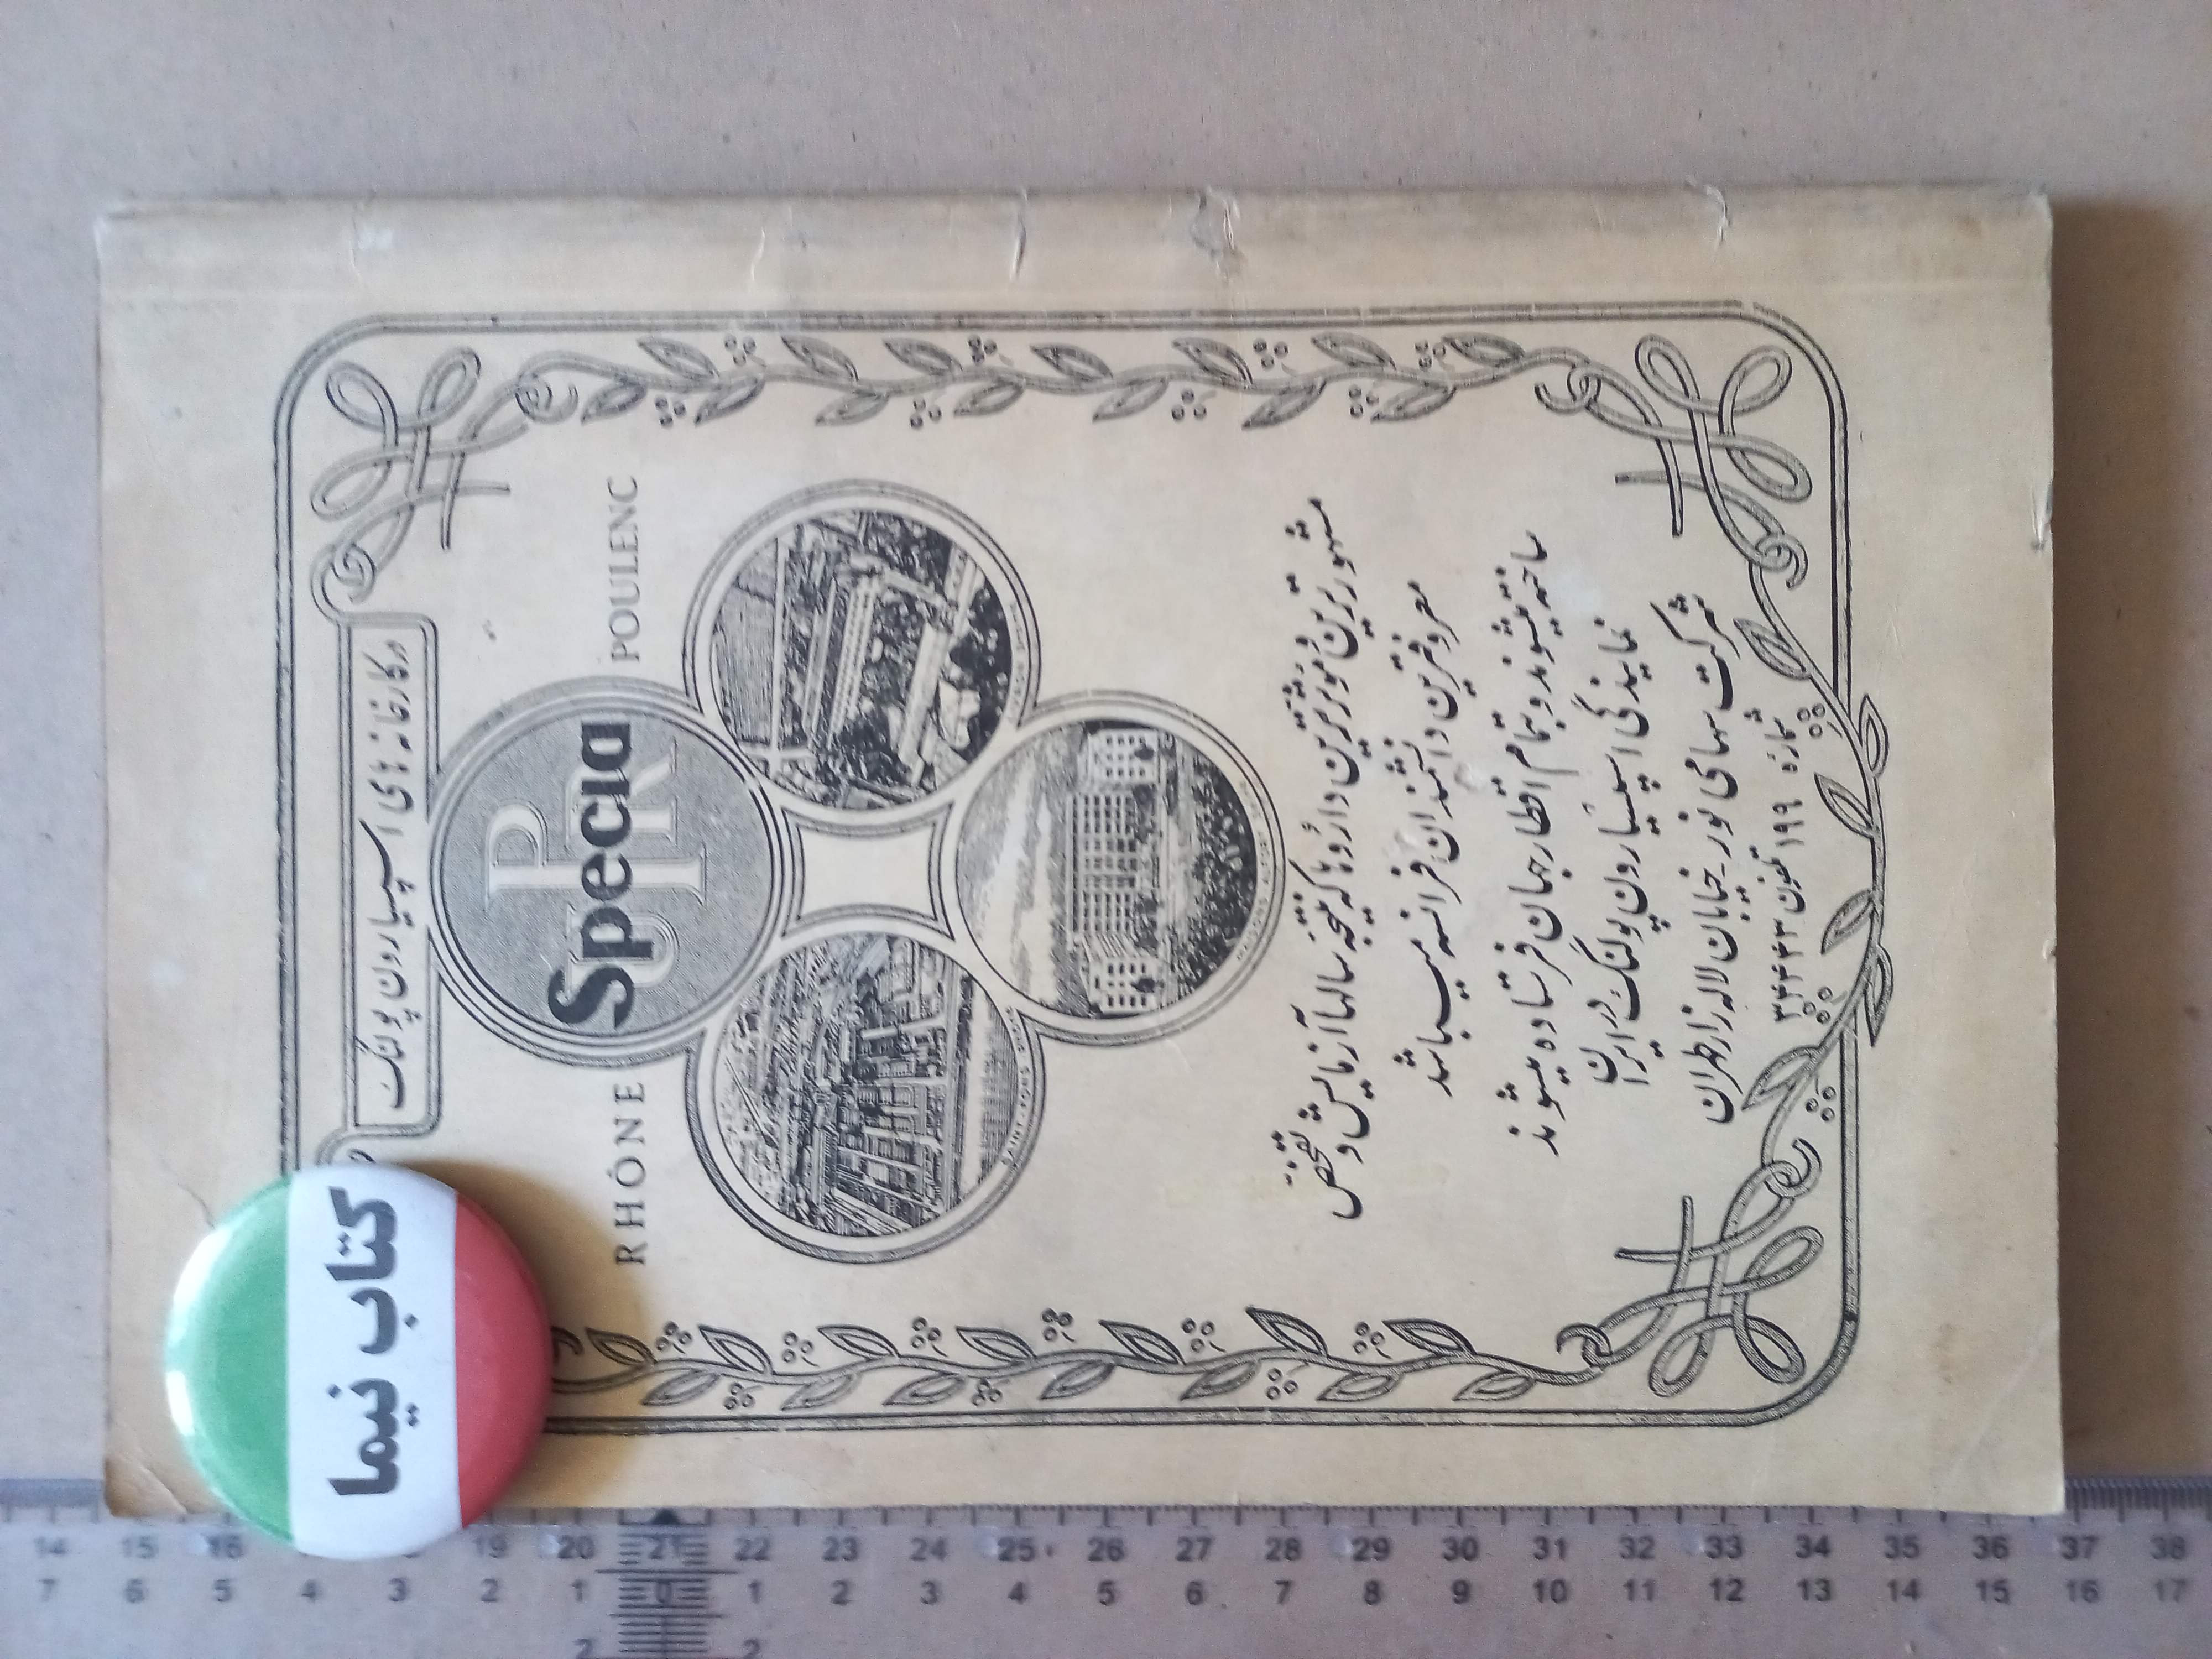 در کارخانه های اسپسیا رون پولنک
RHÔNE
POULENC
Specia
مشهورترین و مؤثرترین داروها که نتیجه سالها آزمایش و تفحص
معروفترین دانشمندان فرانسه میباشد
ساخته میشوند و بتمام اقطار جهان فرستاده میشوند
نمایندگی اسپسیا رون پولنک در ایران
شرکت سهامی نور - خیابان لاله زار طهران
شماره ۱۹۹ تلفون ۳۴۴۳۳
کتاب نیما
14 15 16 19 20 21 22 23 24 25 26 27 28 29 30 31 32 33 34 35 36 37 38
7 6 5 4 3 2 1 0 1 2 3 4 5 6 7 8 9 10 11 12 13 14 15 16 17
2 2